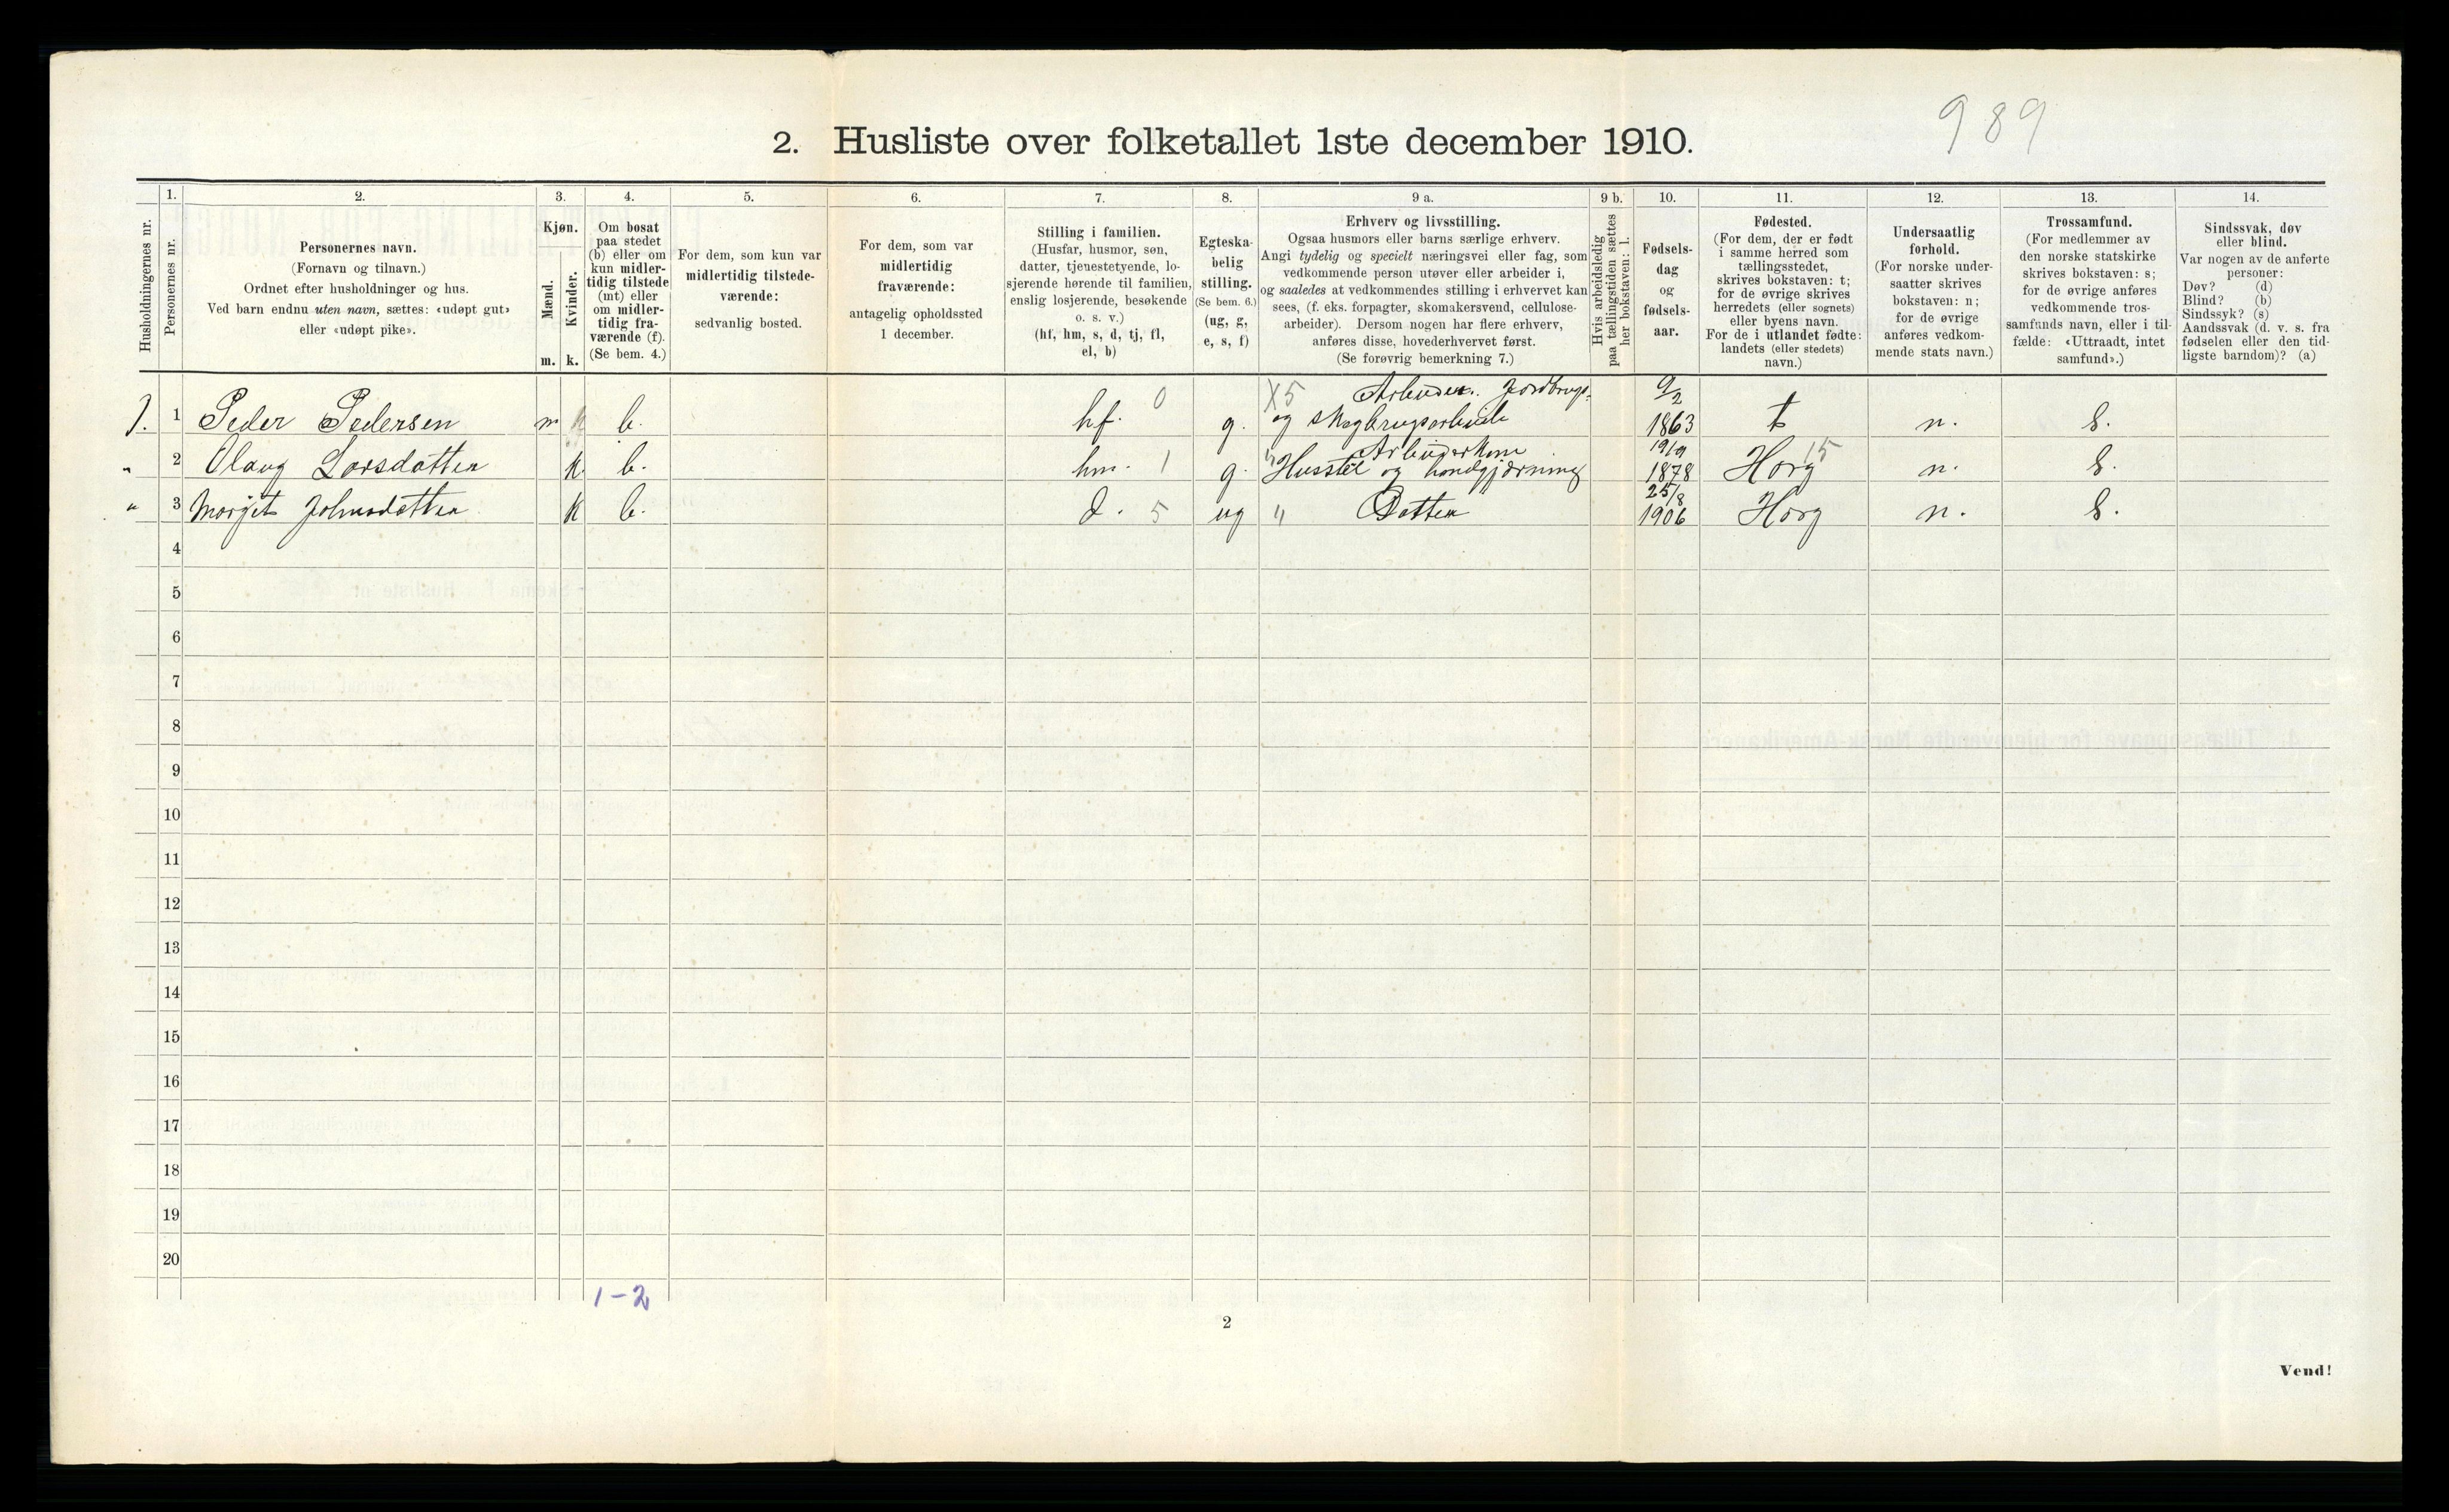 989
2. Husliste over folketallet 1ste december 1910.
Husholdningernes nr.
1.
Personernes nr.
2.
Personernes navn.
(Fornavn og tilnavn.)
Ordnet efter husholdninger og hus.
Ved barn endnu uten navn, sættes: «udøpt gut»
eller «udøpt pike».
3.
Kjøn.
Mænd.
Kvinder.
m. k.
4.
Om bosat
paa stedet
(b) eller om
kun midler-
tidig tilstede
(mt) eller
om midler-
tidig fra-
værende (f).
(Se bem. 4.)
5.
For dem, som kun var
midlertidig tilstede-
værende:
sedvanlig bosted.
6.
For dem, som var
midlertidig
fraværende:
antagelig opholdssted
1 december.
7.
Stilling i familien.
(Husfar, husmor, søn,
datter, tjenestetyende, lo-
sjerende hørende til familien,
enslig losjerende, besøkende
o. s. v.)
(hf, hm, s, d, tj, fl,
el, b)
8.
Egteska-
belig
stilling.
(Se bem. 6.)
(ug, g,
e, s, f)
9 a.
Erhverv og livsstilling.
Ogsaa husmors eller barns særlige erhverv.
Angi tydelig og specielt næringsvei eller fag, som
vedkommende person utøver eller arbeider i,
og saaledes at vedkommendes stilling i erhvervet kan
sees, (f. eks. forpagter, skomakersvend, cellulose-
arbeider). Dersom nogen har flere erhverv,
anføres disse, hovederhvervet først.
(Se forøvrig bemerkning 7.)
9 b.
Hvis arbeidsledig
paa tællingstiden sættes
her bokstaven: l.
10.
Fødsels-
dag
og
fødsels-
aar.
11.
Fødested.
(For dem, der er født
i samme herred som
tællingsstedet,
skrives bokstaven: t;
for de øvrige skrives
herredets (eller sognets)
eller byens navn.
For de i utlandet fødte:
landets (eller stedets)
navn.)
12.
Undersaatlig
forhold.
(For norske under-
saatter skrives
bokstaven: n;
for de øvrige
anføres vedkom-
mende stats navn.)
13.
Trossamfund.
(For medlemmer av
den norske statskirke
skrives bokstaven: s;
for de øvrige anføres
vedkommende tros-
samfunds navn, eller i til-
fælde: «Uttraadt, intet
samfund».)
14.
Sindssvak, døv
eller blind.
Var nogen av de anførte
personer:
Døv? (d)
Blind? (b)
Sindssyk? (s)
Aandssvak (d. v. s. fra
fødselen eller den tid-
ligste barndom)? (a)
1. 1 Peder Pedersen m b. hf. 0 g. X5 Arbeider. Jordbrugs- og skogbrugsarbeide 9/2 1863 t n. S.
" 2 Olaug Larsdatter k b. hm. 1 g. Arbeiderkone Husstel og haandgjærning 19/9 1878 Horg 15 n. S.
" 3 Marjet Johnsdatter k b. d. 5 ug " Datter 25/8 1906 Horg n. S.
4
5
6
7
8
9
10
11
12
13
14
15
16
17
18
19
20
1-2
2
Vend!